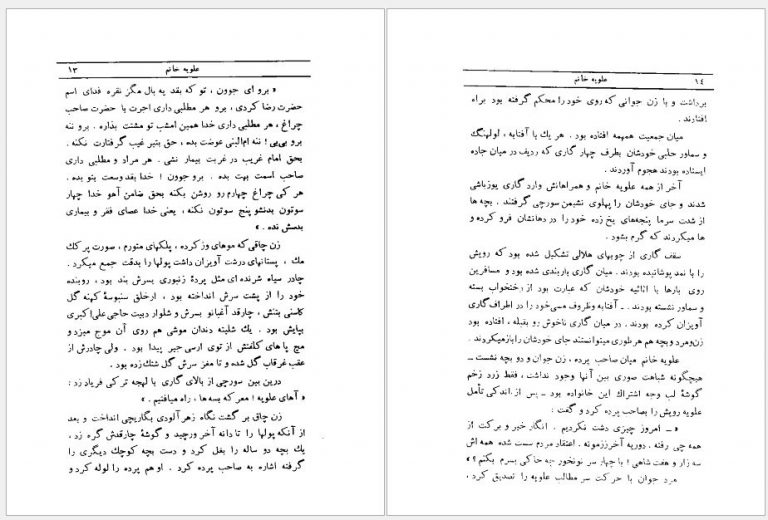 علویه خانم ۱۳
« برو ای جوون ، تو که بقد یه بال مگز نقره فدای اسم
حضرت رضا کردی ، برو هر مطلبی داری اجرت با حضرت صاحب
چراغ ، هر مطلبی داری خدا همین امشب تو مشتت بذاره . برو ننه
برو بی‌بی ! ننه ام‌البنی عوضت بده ، حق بتیر غیب گرفتارت نکنه .
بحق امام غریب در غربت بیمار نشی . هر مراد و مطلبی داری
صاحب اسمت بهت بده . برو جوون ! خدا بقد وسعت بتو بده .
هر کی چراغ چهارم رو روشن بکنه بحق ضامن آهو خدا چهار
ستون بدنشو پنج ستون نکنه ، یعنی خدا عصای فقر و بیماری
بدسش نده . »
زن چاقی که موهای وز کرده ، پلکهای متورم ، صورت پر کک
مک ، پستانهای درشت آویزان داشت پولها را بدقت جمع میکرد .
چادر سیاه شرنده ای مثل پردهٔ زنبوری بسرش بند بود ، روبنده
خود را از پشت سرش انداخته بود ، ارخلق سنبوسهٔ کهنه گل
کاسنی بتنش ، چارقد آغبانو بسرش و شلوار دبیت حاجی علی‌اکبری
بپایش بود . یك شلیته دندان موشی هم روی آن موج میزد و
مچ پاهای کلفتش از توی ارسی جیر پیدا بود . ولی چادرش از
عقب غرقاب گل شده و تا مغز سرش گل شتك زده بود .
درین بین سورچی از بالای گاری با لهجه ترکی فریاد زد :
« آهای علویه ! معر که بسه‌ها ، راه میافتیم . »
زن چاق بر گشت نگاه زهر آلودی بگاریچی انداخت و بعد
از آنکه پولها را تا دانه آخر ورچید و گوشهٔ چارقدش گره زد ،
یك بچه دو ساله را بغل کرد و دست بچه کوچك دیگری را
گرفته اشاره به صاحب پرده کرد . او هم پرده را لوله کرد و
علویه خانم ۱٤
برداشت و با زن جوانی که روی خود را محکم گرفته بود براه
افتادند .
میان جمعیت همهمه افتاده بود . هر یك با آفتابه ، لولهنگ
و سماور حلبی خودشان بطرف چهار گاری که ردیف در میان جاده
ایستاده بودند هجوم آوردند .
آخر از همه علویه خانم و همراهانش وارد گاری یوزباشی
شدند و جای خودشان را پهلوی نشیمن سورچی گرفتند . بچه ها
از شدت سرما پنجه‌های یخ زده خود را در دهانشان فرو کرده و
ها میکردند که گرم بشود .
سقف گاری از چوبهای هلالی تشکیل شده بود که رویش
را با نمد پوشانیده بودند . میان گاری باربندی شده بود و مسافرین
روی بارها با اثاثیه خودشان که عبارت بود از رختخواب بسته
و سماور نشسته بودند . ـ آفتابه وظروف مسی خود را در اطراف گاری
آویزان کرده بودند . در میان گاری ناخوش رو بقبله ، افتاده بود
زن‌ومرد وبچه هم هر طوری میتوانستند جای خودشان را باز میکردند .
علویه خانم میان صاحب پرده ، زن جوان و دو بچه نشست ــ
هیچگونه شباهت صوری بین آنها وجود نداشت ، فقط زرد زخم
گوشهٔ لب وجه اشتراك این خانواده بود ــ پس از اندکی تأمل
علویه رویش را بصاحب پرده کرد و گفت :
« ــ امروز چیزی دشت نکردیم . انگار خیر و برکت از
همه چی رفته . دوریه آخرزمونه . اعتقاد مردم سست شده همه اش
سه زار و هفت شاهی ! با چهار سر نونخور چه خاکی بسرم بکنم ؟ »
مرد جوان با حرکت سر مطالب علویه را تصدیق کرد ،